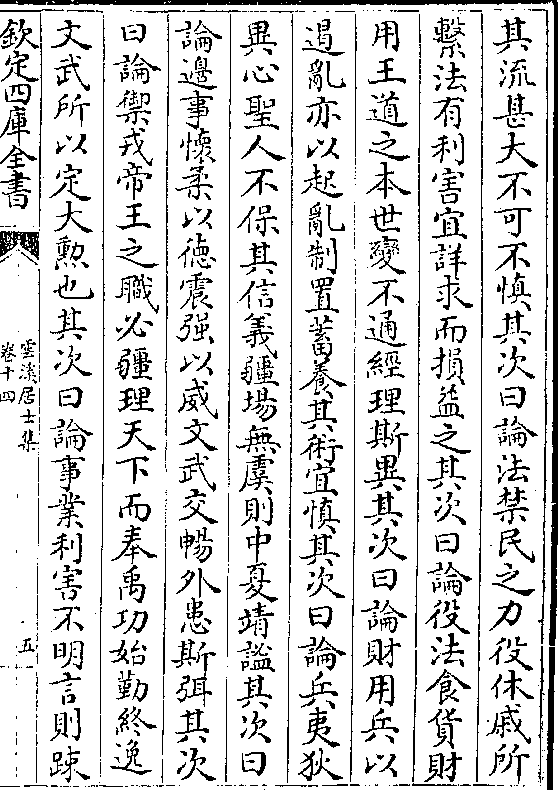 其流甚大不可不慎其次曰論法禁民之力役休戚所
繫法有利害宜詳求而損益之其次曰論役法食貨財
用王道之本世變不通經理斯異其次曰論財用兵以
遏亂亦以起亂制置蓄養其術宜慎其次曰論兵夷狄
異心聖人不保其信義疆場無虞則中夏靖謐其次曰
論邊事懷柔以徳震强以威文武交暢外患斯弭其次
曰論禦戎帝王之職必疆理天下而奉禹功始勤終逸
文武所以定大勲也其次曰論事業利害不明言則踈
欽定四庫全書
雲溪居士集
卷十四
五